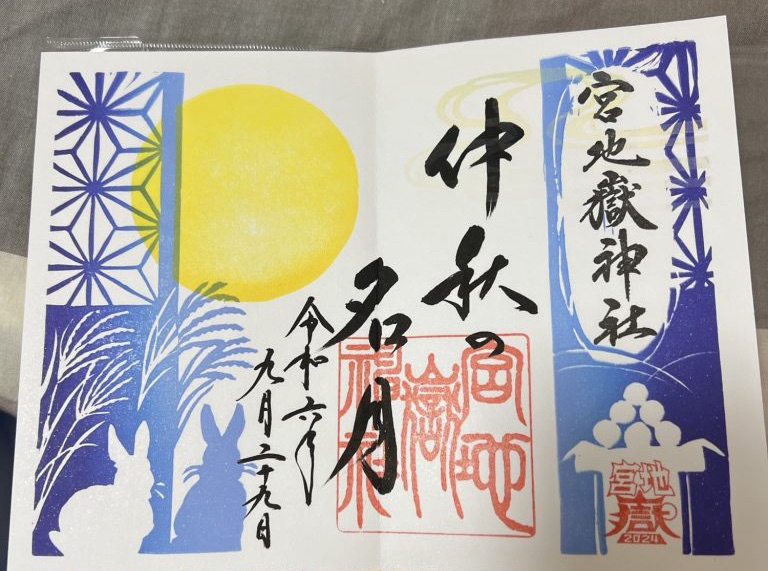 宮地嶽神社
仲秋の
名月
令和六年
九月二十九日
宮地
嶽
神社
宮地
嶽
2024